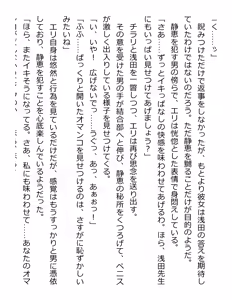 く……っ」
睨みつけただけで返事をしなかったが、もとより彼女は浅田の答えを期待し
ていたわけではないのだろう。ただ静恵を闘ることだけが目的のようだ。
静恵を犯す男の傍らで、エリは恍惚とした表情で身悶えしている。
「さあ……ずっとイキっぱなしの快感を味わわせてあげるわ。ほら、浅田先生
にもいっぱい見せつけてあげましょう?」
チラリと浅田を一瞥して、エリは再び思念を送り出す。
その意を受けた男の手が結合部へと伸び、静恵の秘所をくつろげて、ペニス
が激しく出入りしている様子を見せつけてくる。
「い、いや! 広げないでっ……うぐっ、あっ、あぁぁっ!」
「ふふ……ぱっくりと開いたオマンコを見せつけるのは、さすがに恥ずかしい
みたいね」
エリ自身は悠然と行為を見ているだけだが、感覚はもうすっかりと男に憑依
しており、静恵を犯すことを心底楽しんでいるようだった。
「ほら、またイキそうになってる。さあ、私にも味わわせて……あなたのオマ